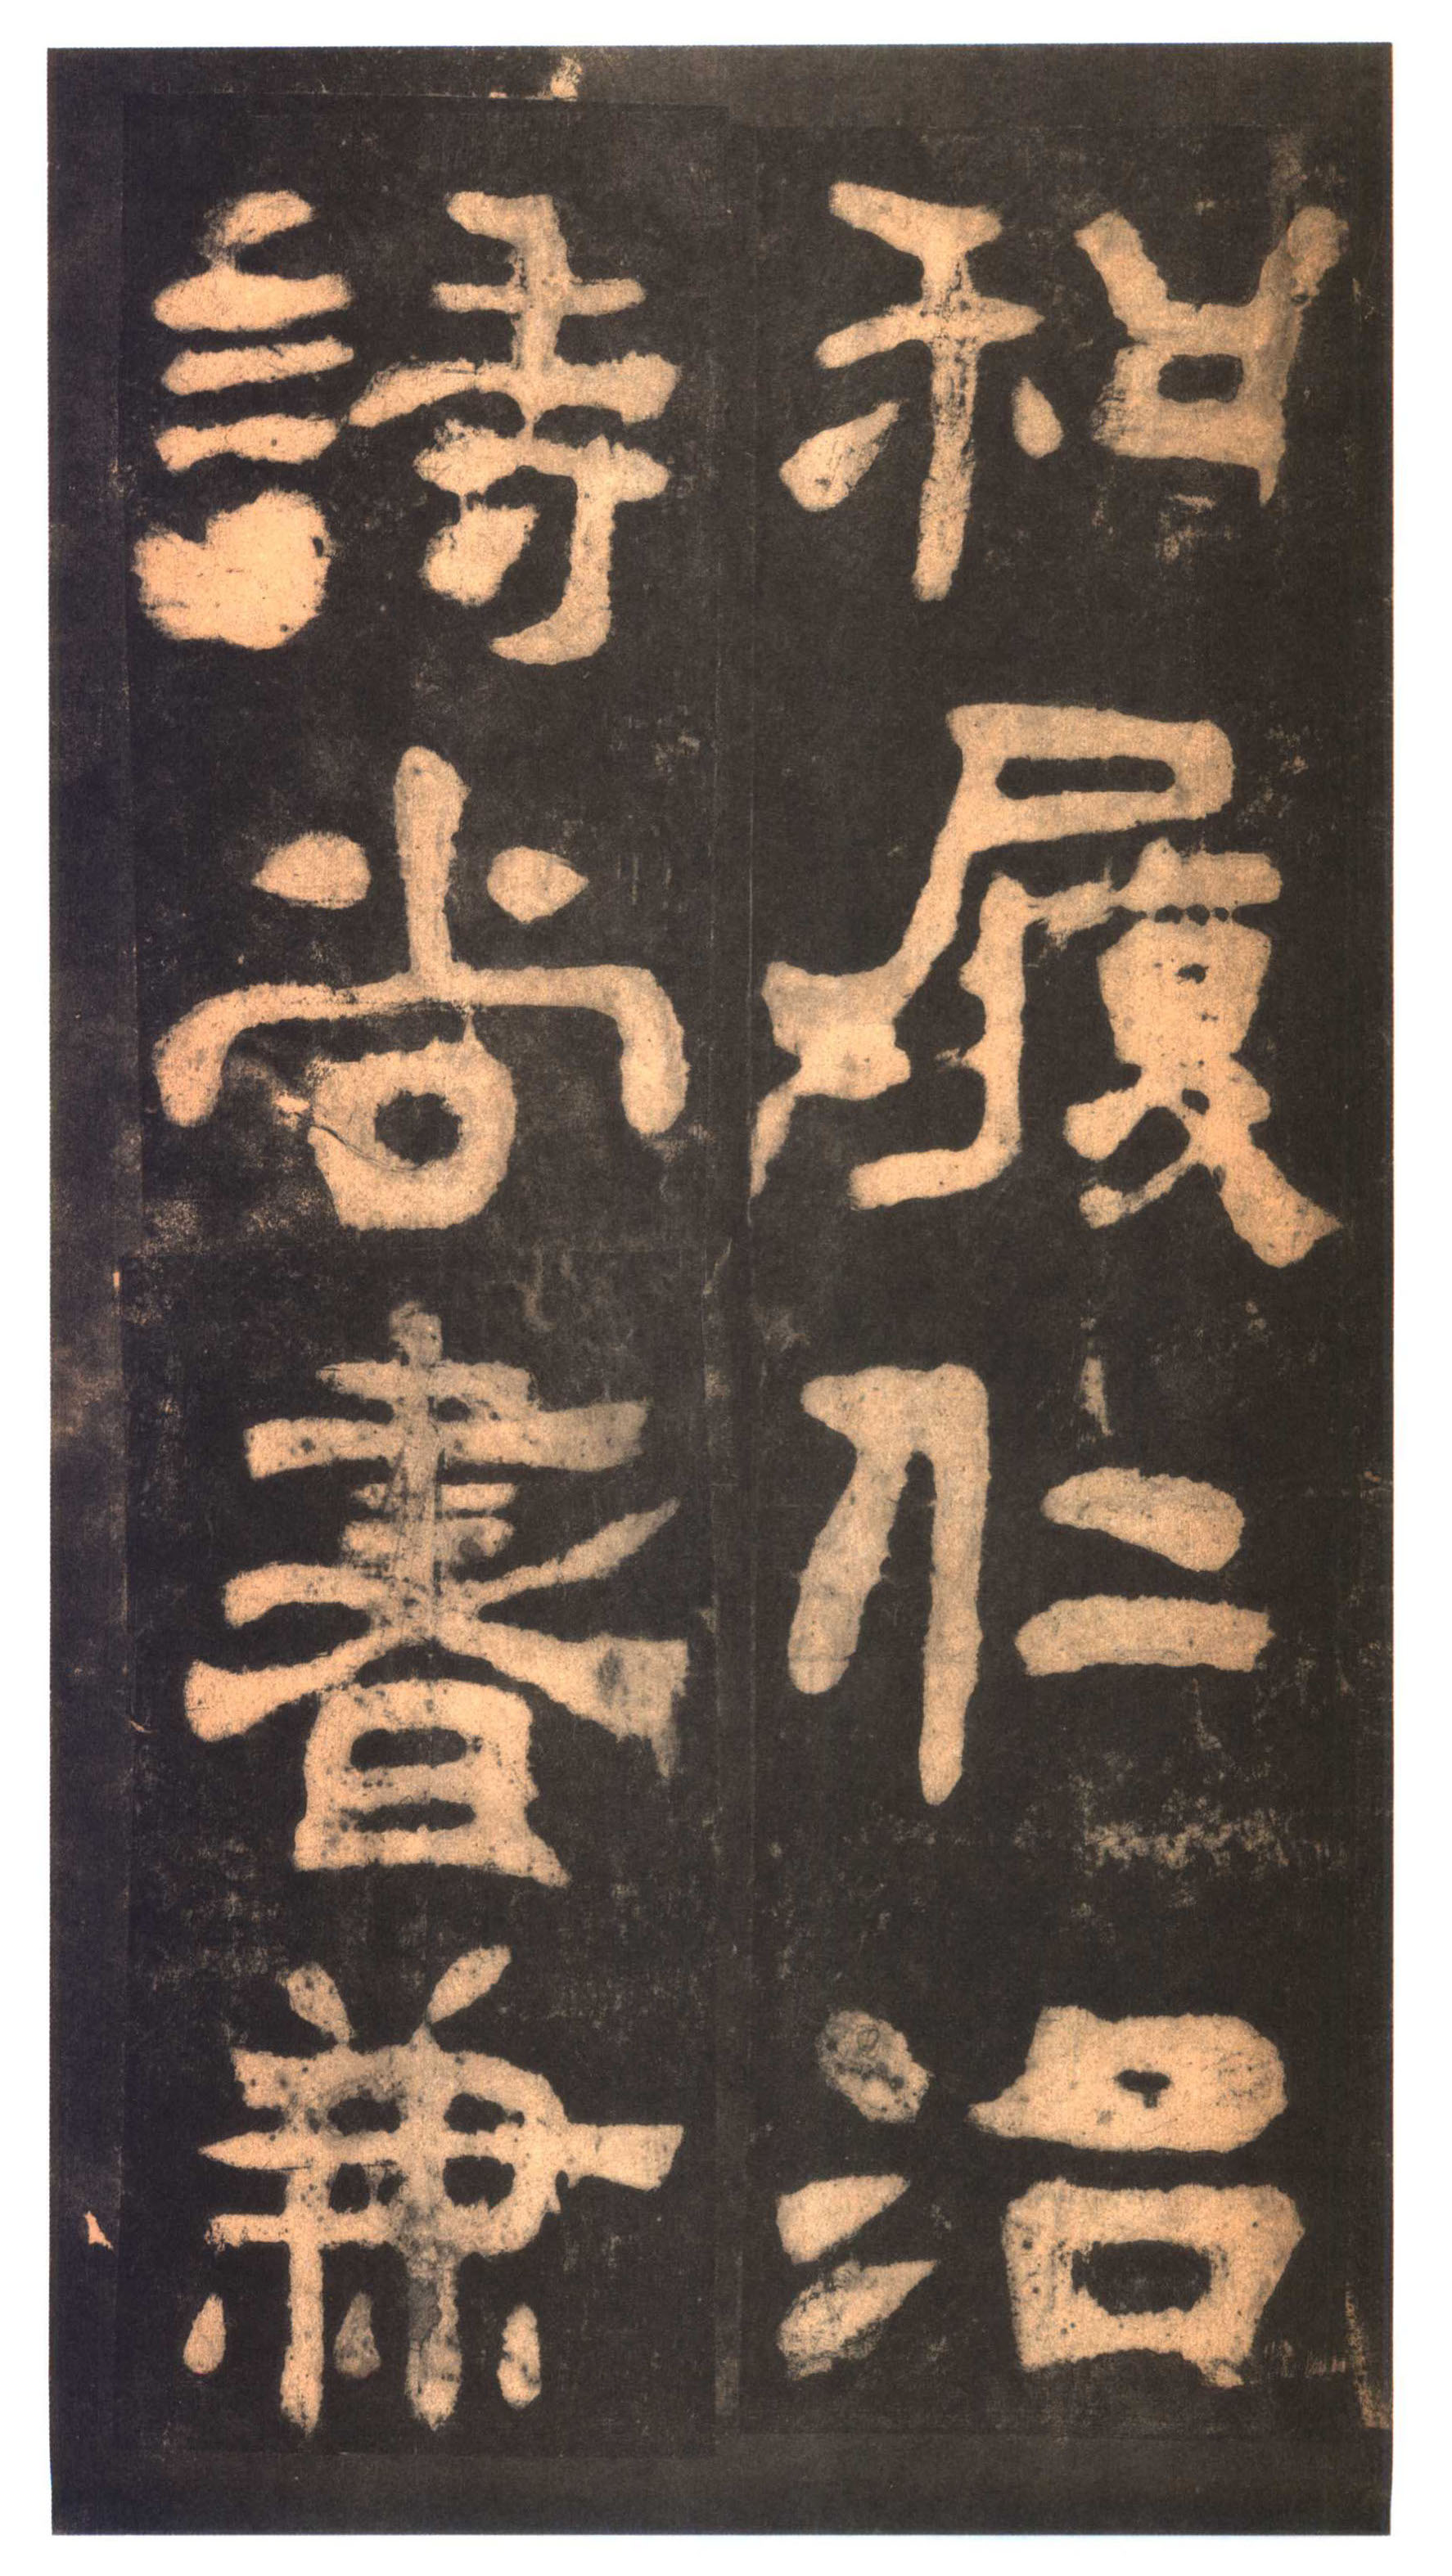 和履仁治
詩尚書兼